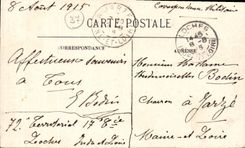 8 Août 1915
Correspondance Militaire
CARTE POSTALE
CORRESPONDANCE
ADRESSE
Affectueux souvenirs
à tous
E. Bodin
72e Territorial 17e Cie
Loches Indre et Loire
Monsieur Madame
Mademoiselle Bodin
Charron à Jarzé
Maine et Loire